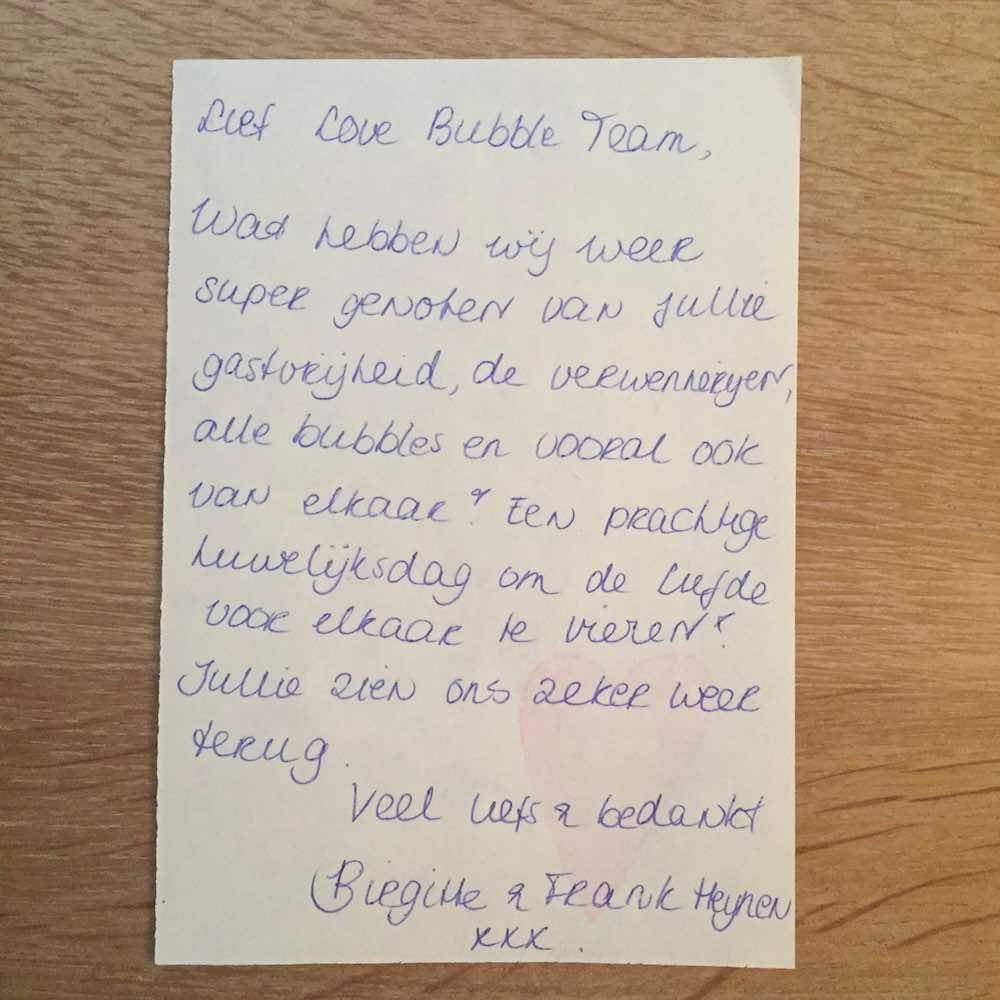 Lief Love Bubble Team,
Wat hebben wij weer
super genoten van jullie
gastvrijheid, de verwennerijen,
alle bubbles en vooral ook
van elkaar! Een prachtige
huwelijksdag om de liefde
voor elkaar te vieren!
Jullie zien ons zeker weer
terug.
Veel liefs & bedankt
Birgitte & Frank Heynen
xxx.